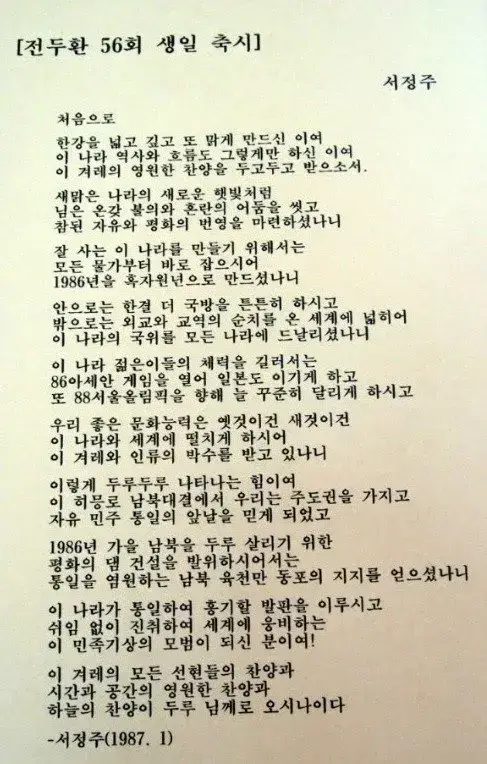 [전두환 56회 생일 축시]
서정주
처음으로
한강을 넓고 깊고 또 맑게 만드신 이여
이 나라 역사와 흐름도 그렇게만 하신 이여
이 겨레의 영원한 찬양을 두고두고 받으소서.
새맑은 나라의 새로운 햇빛처럼
님은 온갖 불의와 혼란의 어둠을 씻고
참된 자유와 평화의 번영을 마련하셨나니
잘 사는 이 나라를 만들기 위해서는
모든 물가부터 바로 잡으시어
1986년을 흑자원년으로 만드셨나니
안으로는 한결 더 국방을 튼튼히 하시고
밖으로는 외교와 교역의 순치를 온 세계에 넓히어
이 나라의 국위를 모든 나라에 드날리셨나니
이 나라 젊은이들의 체력을 길러서는
86아세안 게임을 열어 일본도 이기게 하고
또 88서울올림픽을 향해 늘 꾸준히 달리게 하시고
우리 좋은 문화능력은 옛것이건 새것이건
이 나라와 세계에 떨치게 하시어
이 겨레와 인류의 박수를 받고 있나니
이렇게 두루두루 나타나는 힘이여
이 허믕로 남북대결에서 우리는 주도권을 가지고
자유 민주 통일의 앞날을 믿게 되었고
1986년 가을 남북을 두루 살리기 위한
평화의 댐 건설을 발위하시어서는
통일을 염원하는 남북 육천만 동포의 지지를 얻으셨나니
이 나라가 통일하여 흥기할 발판을 이루시고
쉬임 없이 진취하여 세계에 웅비하는
이 민족기상의 모범이 되신 분이여!
이 겨레의 모든 선현들의 찬양과
시간과 공간의 영원한 찬양과
하늘의 찬양이 두루 님께로 오시나이다
-서정주(1987. 1)